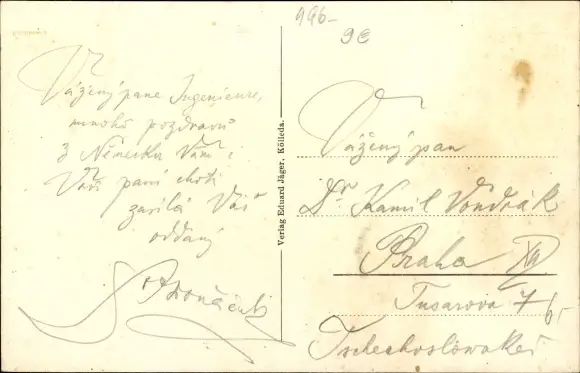 996-
9€
Vážený pane Ingenieure,
mnoho pozdravů
z Německa Vám i
Vaší paní choti
zasílá Váš
oddaný
Verlag Eduard Jäger, Kölleda.
Vážený pan
Dr Kamil Vondrák
Praha
Tusarova 7
Tschechoslowakei